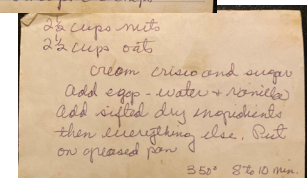 2½ cups nuts
2½ cups oats
cream crisco and sugar
add eggs - water & vanilla
add sifted dry ingredients
then everything else. Put
on greased pan
350° 8 to 10 min.